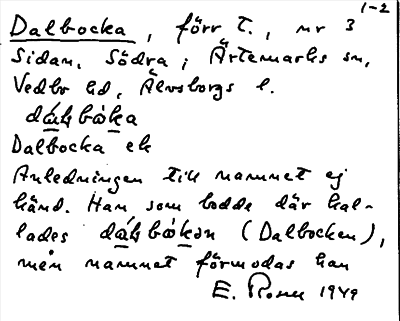 1-2
Dalbocka, förr t., nr 3
Sidan, Södra, i Ärtemarks sn,
Vedbo hd, Älvsborgs l.
dáḷbòka
Dalbocka ek
Anledningen till namnet ej
känd. Han som bodde där kal-
lades dáḷbòkən (Dalbocken),
men namnet förmodas han
E. Rosen 1949